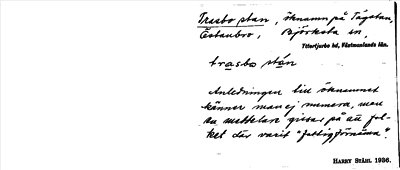 Trasbo stan, öknamn på Tågstan,
Östanbro, Björksta sn,
Yttertjurbo hd, Västmanlands län.
trasbo stán
Anledningen till öknamnet
känner man ej numera, men
sa meddelar gissar på att fol-
ket där varit "fattigförnäma".
HARRY STÅHL 1936.